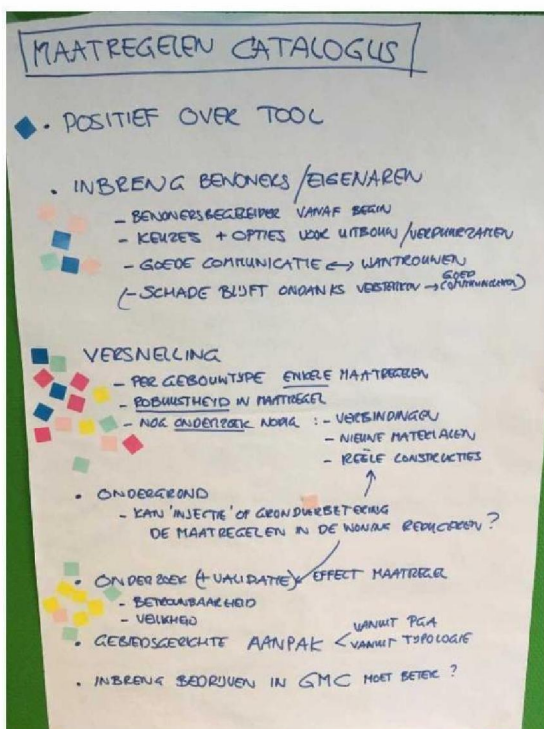 MAATREGELEN CATALOGUS
• POSITIEF OVER TOOL
• INBRENG BEWONERS/EIGENAREN
- BEWONERSBEGELEIDER VANAF BEGIN
- KEUZES + OPTIES VOOR UITBOUW/VERDUURZAMEN
- GOEDE COMMUNICATIE ↔ WANTROUWEN
(- SCHADE BLIJFT ONDANKS VERSTERKEN → GOED COMMUNICEREN)
VERSNELLING
- PER GEBOUWTYPE ENKELE MAATREGELEN
- ROBUUSTHEID IN MAATREGEL
- NOG ONDERZOEK NODIG : - VERBINDINGEN
- NIEUWE MATERIALEN
- REËLE CONSTRUCTIES
• ONDERGROND
- KAN 'INJECTIE' OF GRONDVERBETERING
DE MAATREGELEN IN DE WONING REDUCEREN?
• ONDERZOEK (+ VALIDATIE) EFFECT MAATREGEL
- BETROUWBAARHEID
- VEILIGHEID
• GEBIEDSGERICHTE AANPAK < VANUIT PGA
VANUIT TYPOLOGIE
• INBRENG BEDRIJVEN IN GMC MOET BETER?